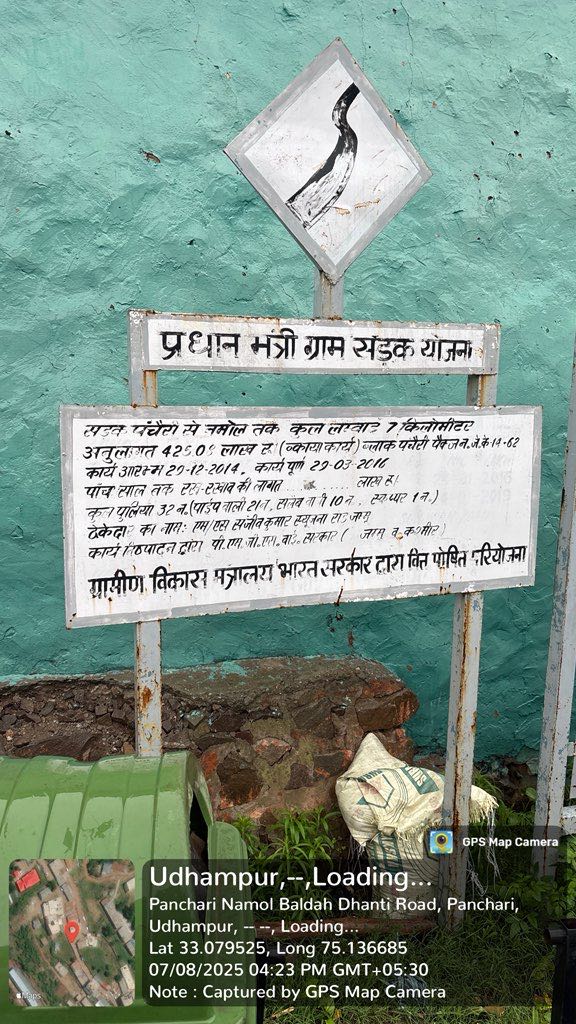 प्रधान मंत्री ग्राम सड़क योजना
सड़क पंचैरी से नमोल तक कुल लम्बाई 7 किलोमीटर
अनु लागत 425.09 लाख रु (बकाया कार्य) ब्लाक पंचैरी पैकेज न. जे.के-14-62
कार्य आरम्भ 29-12-2014. कार्य पूर्ण 29-03-2016
पाँच साल तक रख-रखाव की लागत लाख रु।
कुल पुलिया 32 न. (पाईप वाली 21 न. 10 न. 1 न.)
ठेकेदार का नाम: एम/एस संजीव कुमार
कार्य निष्पादन द्वारा पी.एम.जी.एस.वाई. सरकार ( जम्मू व. कश्मीर )
ग्रामीण विकास मंत्रालय भारत सरकार द्वारा वित पोषित परियोजना
GPS Map Camera
Udhampur,--,Loading...
Panchari Namol Baldah Dhanti Road, Panchari,
Udhampur, -- --, Loading...
Lat 33.079525, Long 75.136685
07/08/2025 04:23 PM GMT+05:30
Note : Captured by GPS Map Camera
Maps